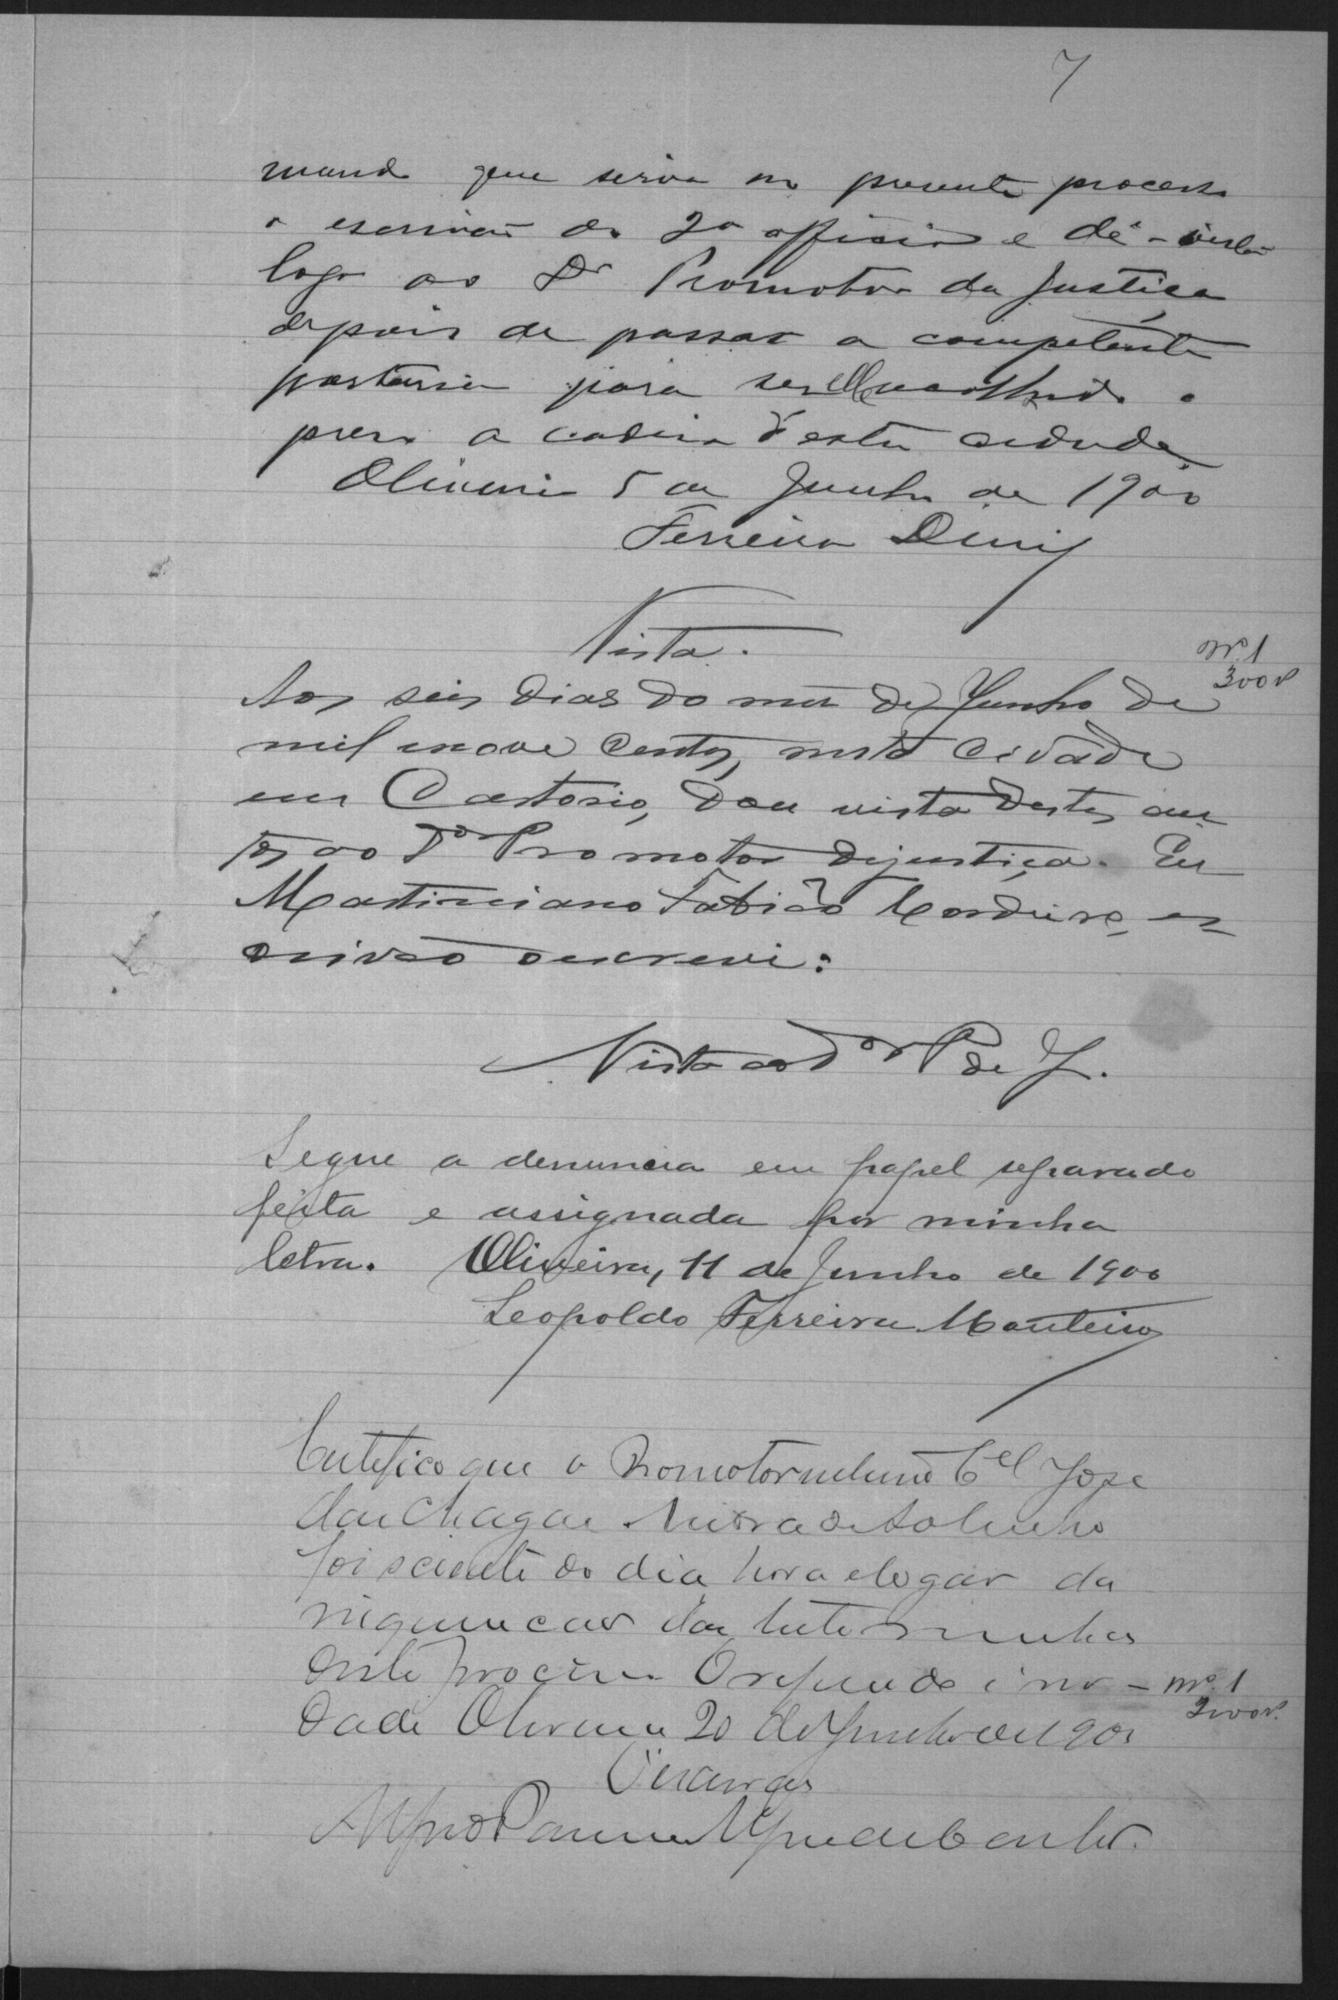 7
mando que sirva no presente processo
o escrivão do 2º officio e dê-se vista
logo ao Dr Promotor da Justiça
depois de passar a competente
portaria para ser recolhido o
preso a cadeia d'esta cidade.
Oliveira 5 de Junho de 1900
Ferreira Diniz
Vista.
Nº 1
300 r
Aos seis dias do mez de Junho de
mil e nove centos, nesta cidade
em Cartorio, dou vista destes au-
tos ao Dor Promotor dejustiça. Eu
Martiniano Fabião Cordeiro, es-
crivão o escrevi:
Vista ao Dor P de J.
Segue a denuncia em papel separado
feita e assignada por minha
letra. Oliveira, 11 de Junho de 1900
Leopoldo Ferreira Monteiro
Certifico que o Promotor Cel José
das Chagas
foi sciente do dia hora e logar da
das testemunhas
deste processo O referido é ver-
Nº 1
200 r.
dade Oliveira 20 de Junho de 1900